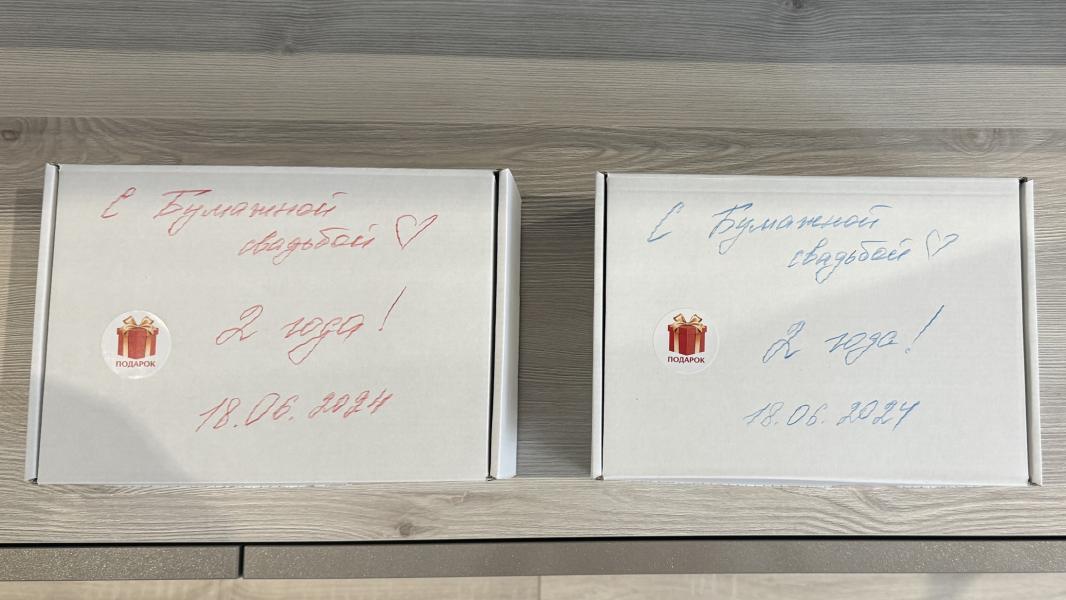 С Бумажной
свадьбой ♡
2 года!
ПОДАРОК
18.06.2024
С Бумажной
свадьбой ♡
2 года!
ПОДАРОК
18.06.2024